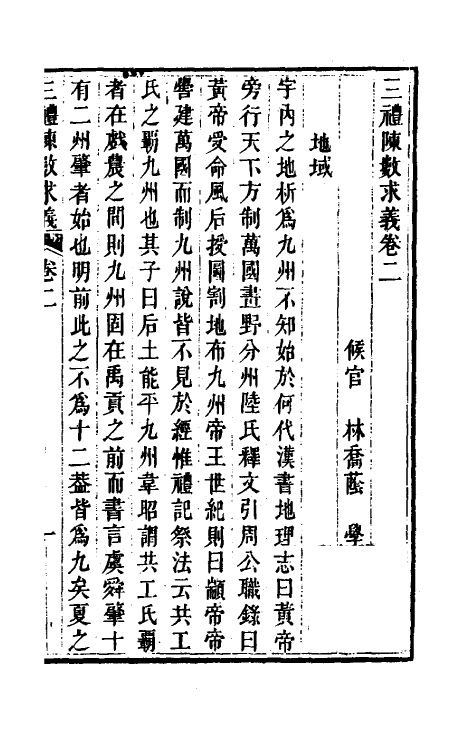 三禮陳數求義卷二
候官 林喬蔭 學
地域
宇內之地析爲九州不知始於何代漢書地理志曰黃帝
旁行天下方制萬國畫野分州陸氏釋文引周公職錄曰
黃帝受命風后授圖割地布九州帝王世紀則曰顓帝帝
嚳建萬國而制九州說皆不見於經惟禮記祭法云共工
氏之霸九州也其子曰后土能平九州韋昭謂共工氏霸
者在戲農之間則九州固在禹貢之前而書言虞舜肇十
有二州肇者始也明前此之不爲十二葢皆爲九矣夏之
三禮陳數求義 卷二 一